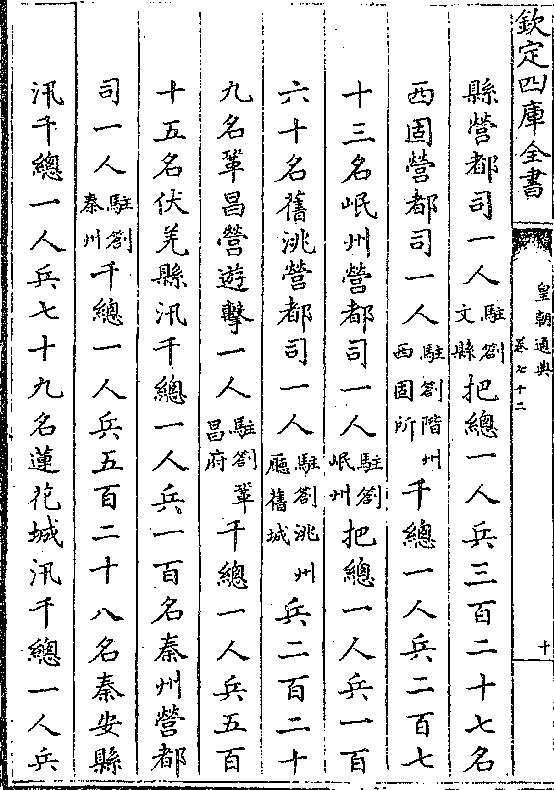 欽定四庫全書
皇朝通典
卷七十二
十
縣營都司一人駐劄文縣把總一人兵三百二十七名
西固營都司一人駐劄階州西固所千總一人兵二百七
十三名岷州營都司一人駐劄岷州把總一人兵一百
六十名舊洮營都司一人駐劄洮州廳舊城兵二百二十
九名鞏昌營遊擊一人駐劄鞏昌府千總一人兵五百
十五名伏羌縣汛千總一人兵一百名秦州營都
司一人駐劄秦州千總一人兵五百二十八名秦安縣
汛千總一人兵七十九名蓮花城汛千總一人兵